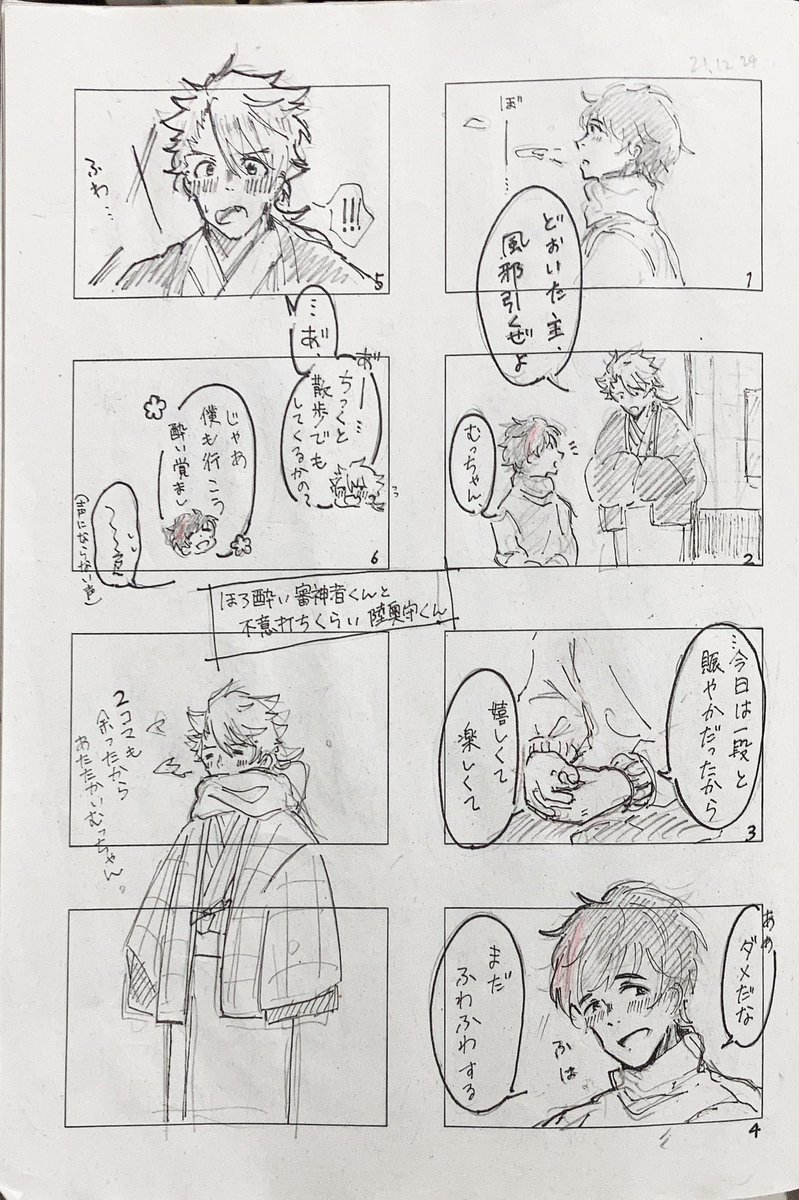 21.12.29
ぼーーー…
どおいた主、
風邪引くぜよ
1
むっちゃん
2
…今日は一段と
賑やかだったから
嬉しくて
楽しくて
3
ああ
ダメだな
まだ
ふわふわする
ふは
4
!!!
ふわ…
5
…あ゛、
あ゛ー…
ちっくと
散歩でも
してくるかの?
じゃあ
僕も行こう
酔い覚まし
(声にならない声)
6
ほろ酔い審神者くんと
不意打ちくらい陸奥守くん
2コマも
余ったから
あたたかいむっちゃん。